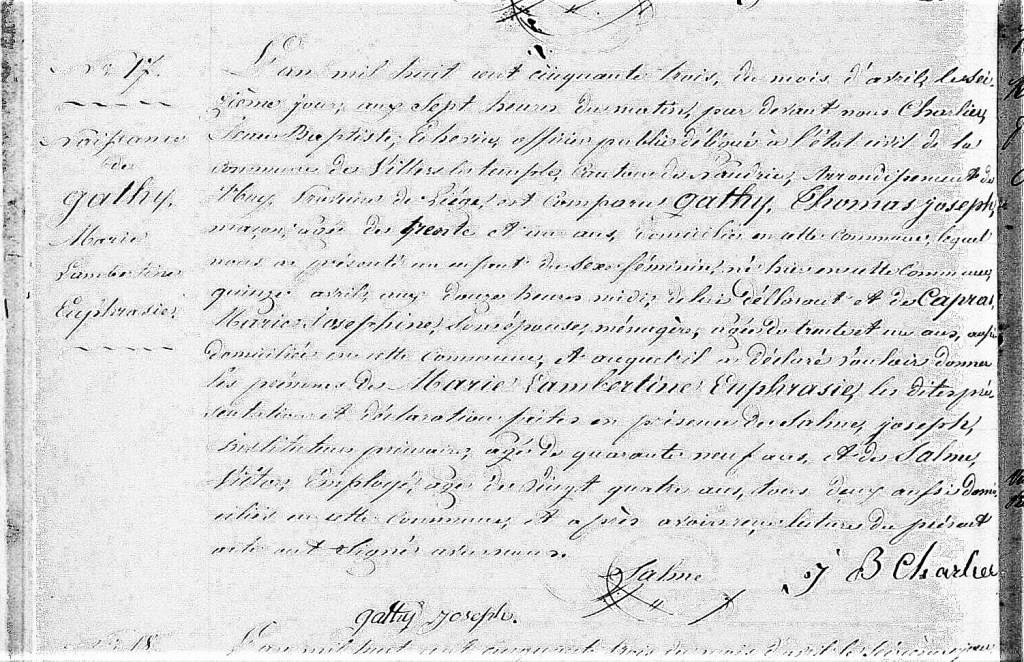 N° 17.
Naissance
de
gathy,
Marie
Lambertine
Euphrasie.
L'an mil huit cent cinquante trois, du mois d'avril, le sei-
zième jour, aux Sept heures du matin, par devant nous Charlier,
Jean Baptiste, Echevin, officier public délégué à l'état civil de la
commune de Villers le temple, Canton de Nandrin, Arrondissement de
Huy, Province de Liége, est Comparu gathy, Thomas joseph,
maçon, agé de trente et un ans, domicilié en cette Commune, lequel
nous a présenté un enfant du Sexe féminin, né hier en cette Commune,
quinze avril, aux douze heures midi, de lui déclarant et de Capra,
Marie Josephine, Son épouse, ménagère, agée de trente et un ans, aussi
domiciliée en cette Commune, et auquel il a déclaré vouloir donner
les prénoms de Marie Lambertine Euphrasie, les dites pré-
sentation et déclaration faites en présence de Salme, joseph,
instituteur primaire, agé de quarante neuf ans, et de Salme,
Victor, Employé, agé de vingt quatre ans, tous deux aussi domi-
ciliés en cette Commune, et après avoir reçu lecture du présent
acte ont Signé avec nous.
Salme
J B Charlier
gathy joseph.
N° 18.
L'an mil huit cent cinquante trois du mois d'avril le